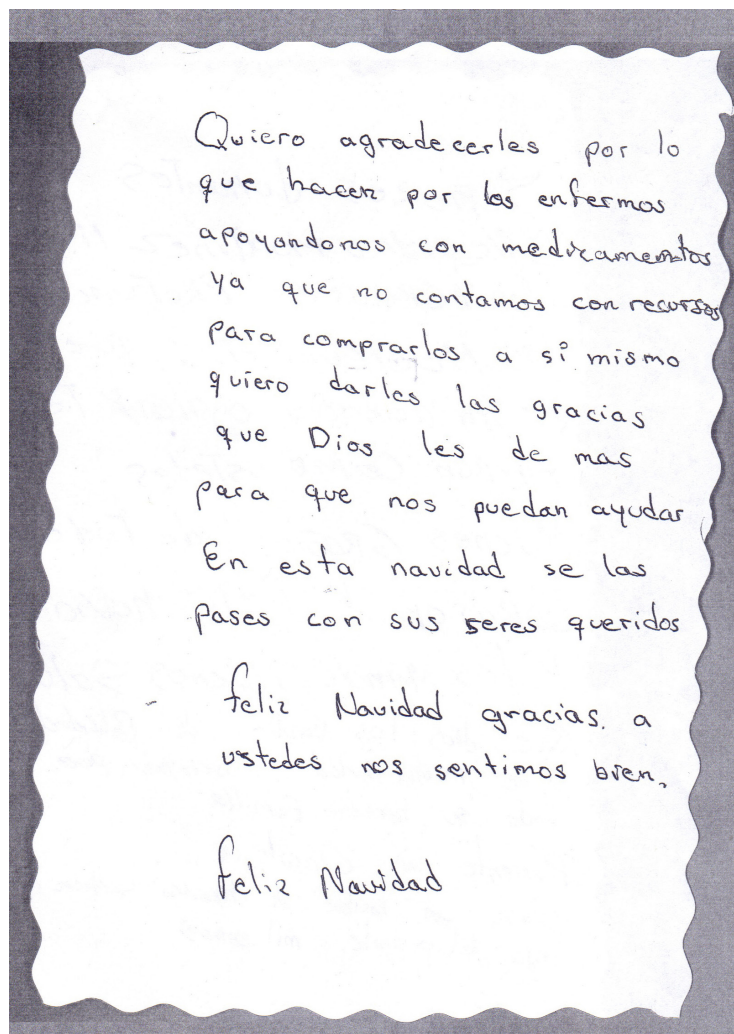 Quiero agradecerles por lo
que hacen por los enfermos
apoyandonos con medicamentos
ya que no contamos con recursos
para comprarlos a si mismo
quiero darles las gracias
que Dios les de mas
para que nos puedan ayudar
En esta navidad se las
pases con sus seres queridos
feliz Navidad gracias a
ustedes nos sentimos bien.
feliz Navidad